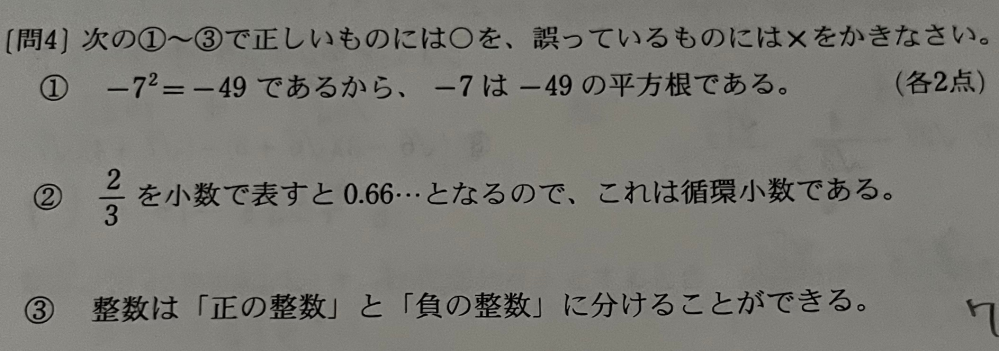 〔問4〕次の①～③で正しいものには○を、誤っているものには×をかきなさい。
① −7²＝−49 であるから、 −7 は −49 の平方根である。 （各2点）
② 2/3 を小数で表すと 0.66…となるので、これは循環小数である。
③ 整数は「正の整数」と「負の整数」に分けることができる。